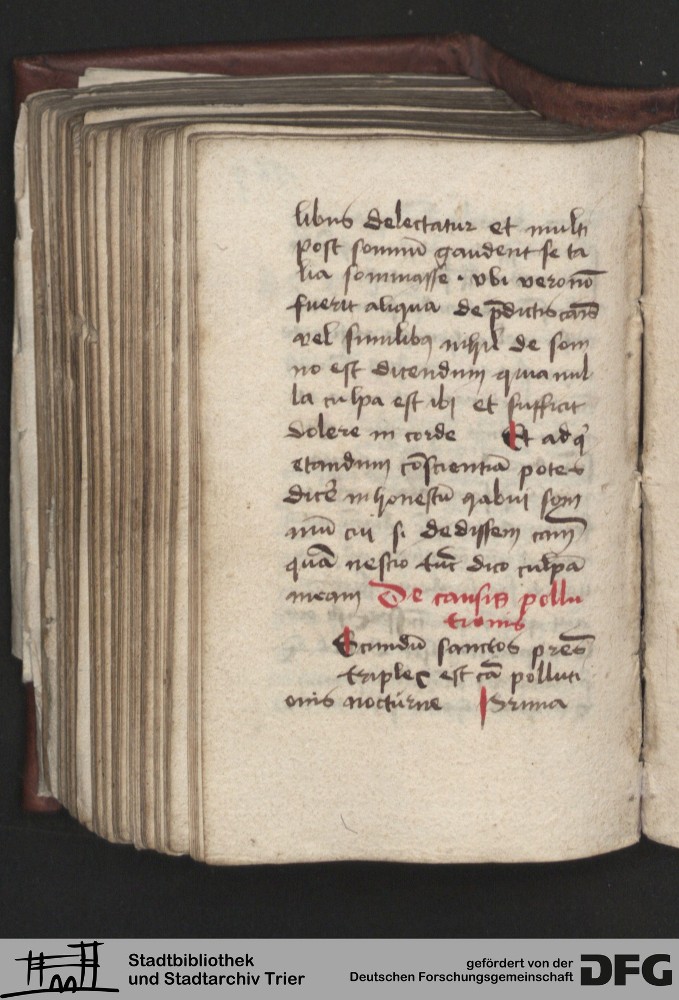 libus delectatur et multi
post somnũ gaudent se ta
lia somniasse · vbi vero nõ
fuerit aliqua de p̄dictis cãis
vel similibꝫ nihil de som
no est dicendum quia nul
la culpa est ibi et sufficit
dolere in corde Et ad q̾
etandum cõscientiã potes
dicẽ inhonestũ habui som
niũ cui si dedissem cãm
quã nescio tũc dico culpã
meam De causis pollu
tionis
Scundũ sanctos pr̃es
triplex est cã polluti
onis nocturne Prima
Stadtbibliothek
und Stadtarchiv Trier
gefördert von der
Deutschen Forschungsgemeinschaft
DFG